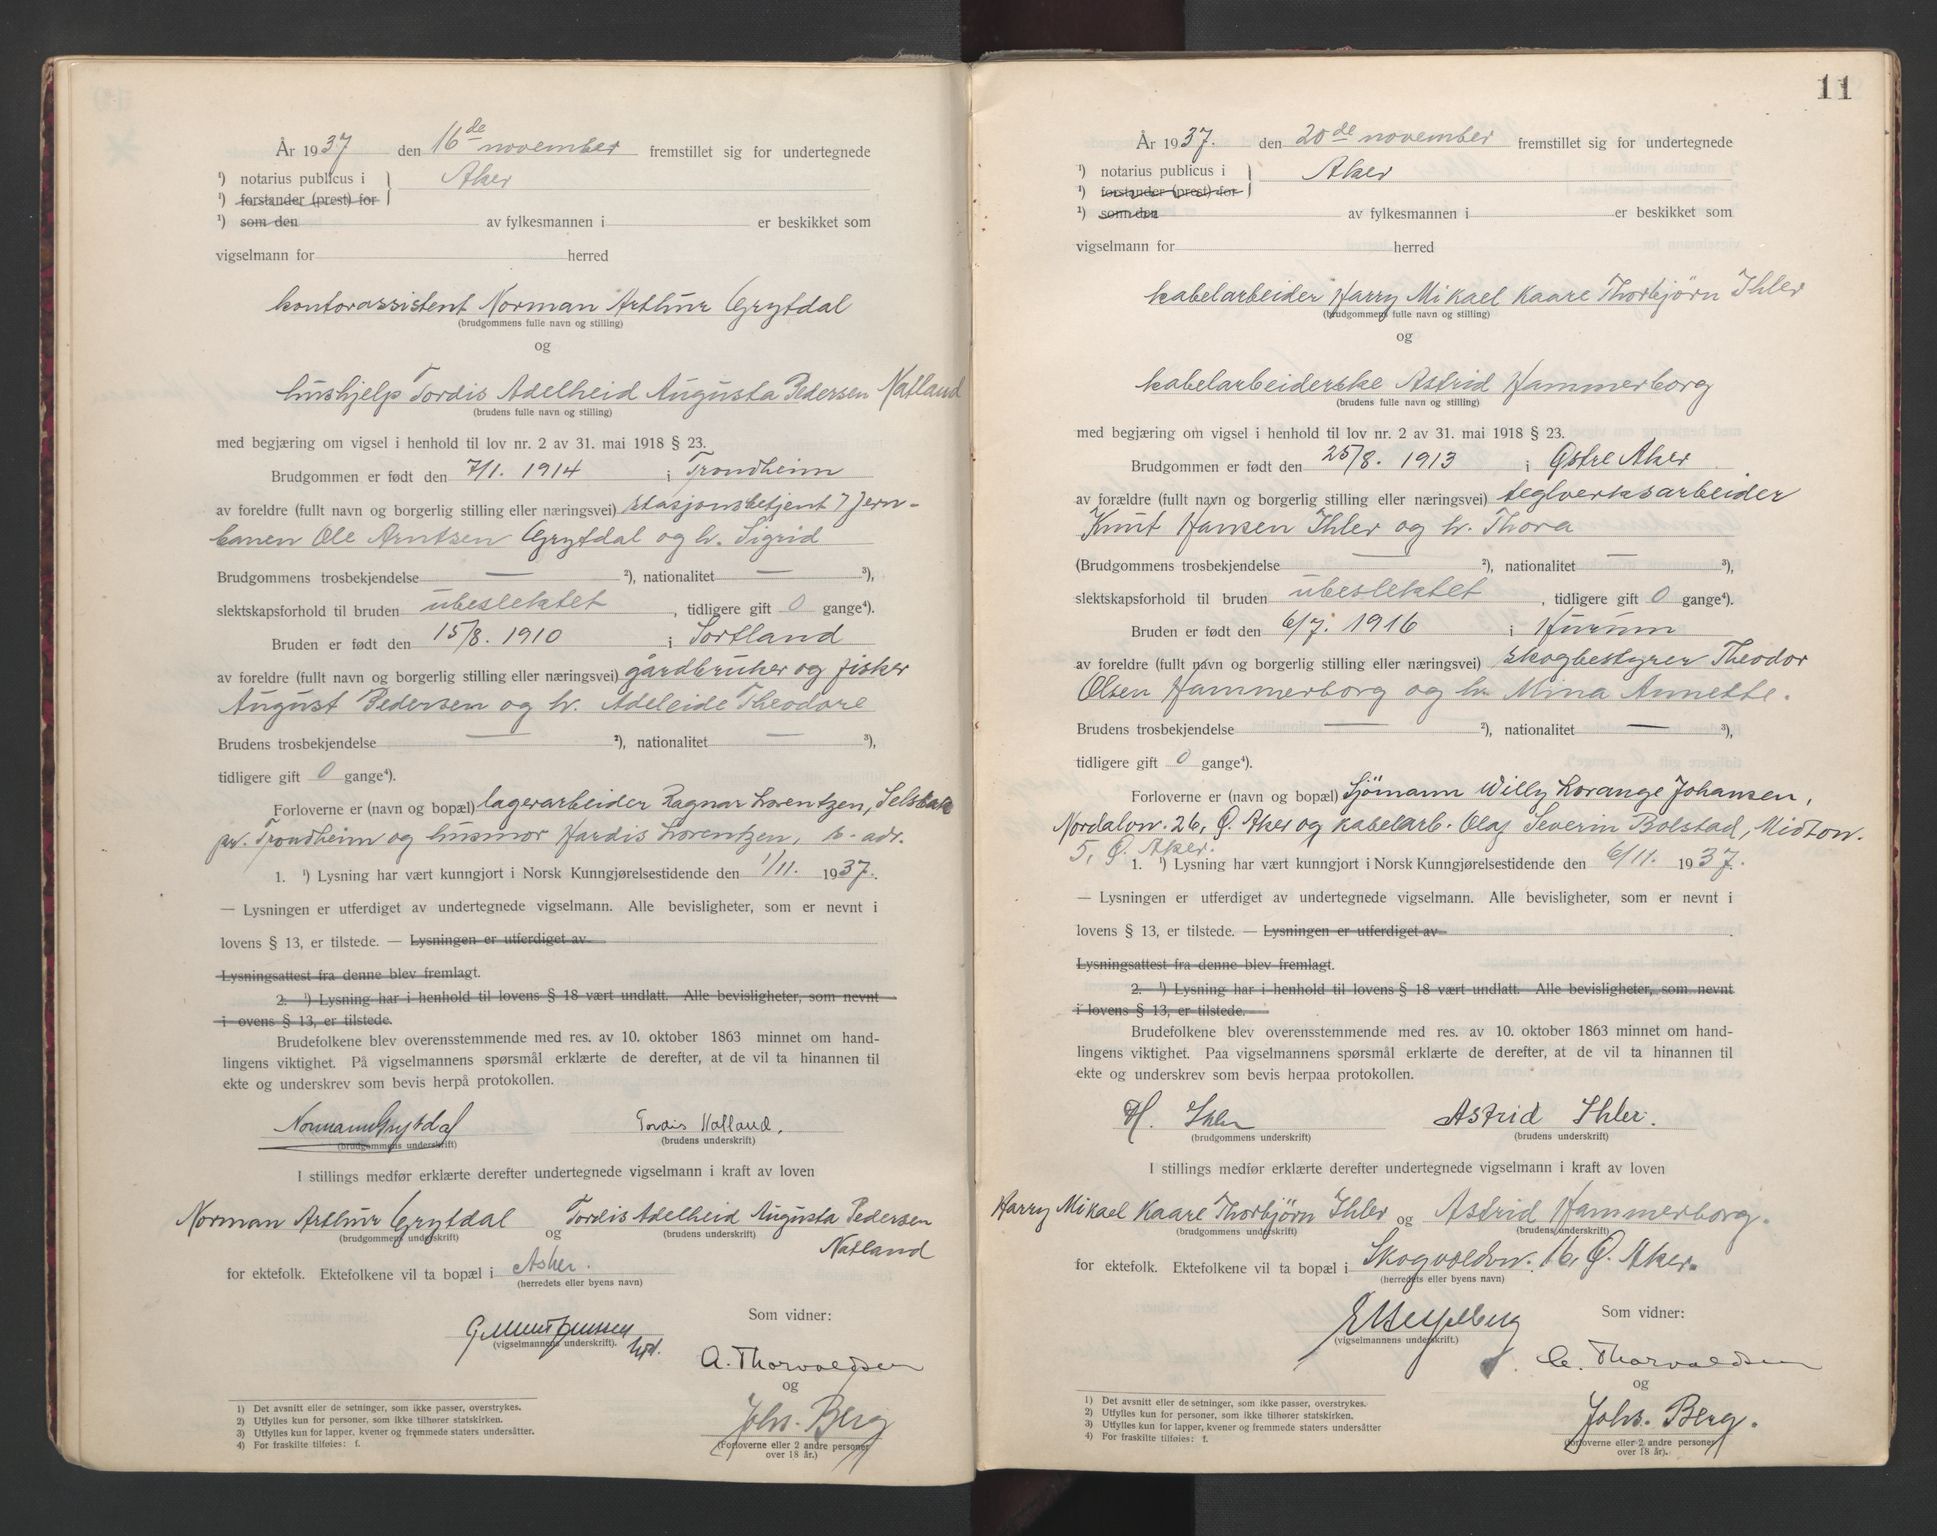 År 1937 den 16de november fremstillet sig for undertegnede
¹) notarius publicus i } Aker
¹) forstander (prest) for
¹) som den av fylkesmannen i er beskikket som
vigselmann for herred
kontorassistent Norman Arthur Grytdal
(brudgommens fulle navn og stilling)
og
hushjelp Tordis Adelheid Augusta Pedersen Natland
(brudens fulle navn og stilling)
med begjæring om vigsel i henhold til lov nr. 2 av 31. mai 1918 § 23.
Brudgommen er født den 7/1. 1914 i Trondheim
av foreldre (fullt navn og borgerlig stilling eller næringsvei) stasjonsbetjent v/ jern-
banen Ole Arntsen Grytdal og h. Sigrid
Brudgommens trosbekjendelse — ²), nationalitet — ³),
slektskapsforhold til bruden ubeslektet, tidligere gift 0 gange⁴).
Bruden er født den 15/8. 1910 i Sortland
av foreldre (fullt navn og borgerlig stilling eller næringsvei) gårdbruker og fisker
August Pedersen og h. Adeleide Theodore
Brudens trosbekjendelse — ²), nationalitet — ³),
tidligere gift 0 gange⁴).
Forloverne er (navn og bopæl) lagerarbeider Ragnar Lorentzen, Selsbak
pr. Trondheim og husmor Hardis Lorentzen, s. adr.
1. ¹) Lysning har vært kunngjort i Norsk Kunngjørelsestidende den 1/11. 1937.
— Lysningen er utferdiget av undertegnede vigselmann. Alle bevisligheter, som er nevnt i
lovens § 13, er tilstede. — Lysningen er utferdiget av
Lysningsattest fra denne blev fremlagt.
2. ¹) Lysning har i henhold til lovens § 18 vært undlatt. Alle bevisligheter, som nevnt
i lovens § 13, er tilstede.
Brudefolkene blev overensstemmende med res. av 10. oktober 1863 minnet om hand-
lingens viktighet. På vigselmannens spørsmål erklærte de derefter, at de vil ta hinannen til
ekte og underskrev som bevis herpå protokollen.
Norman Grytdal Tordis Natland.
(brudgommens underskrift) (brudens underskrift)
I stillings medfør erklærte derefter undertegnede vigselmann i kraft av loven
Norman Arthur Grytdal og Tordis Adelheid Augusta Pedersen
(brudgommens underskrift) (brudens underskrift)
Natland
for ektefolk. Ektefolkene vil ta bopæl i Asker.
(herredets eller byens navn)
Som vidner:
(vigselmannens underskrift).
A. Thorvaldsen
og
Johs. Berg
(Forloverne eller 2 andre personer
over 18 år.)
1) Det avsnitt eller de setninger, som ikke passer, overstrykes.
2) Utfylles kun for personer, som ikke tilhører statskirken.
3) Utfylles kun for lapper, kvener og fremmede staters undersåtter.
4) For fraskilte tilføies: f.
11
År 1937. den 20de november fremstillet sig for undertegnede
¹) notarius publicus i } Aker
¹) forstander (prest) for
¹) som den av fylkesmannen i er beskikket som
vigselmann for herred
kabelarbeider Harry Mikael Kaare Thorbjørn Ihler
(brudgommens fulle navn og stilling)
og
kabelarbeiderske Astrid Hammerborg
(brudens fulle navn og stilling)
med begjæring om vigsel i henhold til lov nr. 2 av 31. mai 1918 § 23.
Brudgommen er født den 25/8. 1913 i Østre Aker
av forældre (fullt navn og borgerlig stilling eller næringsvei) teglverksarbeider
Knut Hansen Ihler og h. Thora
(Brudgommens trosbekjendelse — ²), nationalitet — ³),
slektskapsforhold til bruden ubeslektet, tidligere gift 0 gange⁴).
Bruden er født den 6/7. 1916 i Hurum
av foreldre (fullt navn og borgerlig stilling eller næringsvei) skogbestyrer Theodor
Olsen Hammerborg og h. Mina Annette.
Brudens trosbekjendelse — ²), nationalitet — ³),
tidligere gift 0 gange⁴).
Forloverne er (navn og bopæl) Sjömann Willy Lorange Johansen,
Nordalvn. 26, Ø. Aker og kabelarb. Olaf Severin Bolstad, Midton.
5, Ø. Aker.
1. ¹) Lysning har vært kunngjort i Norsk Kunngjørelsestidende den 6/11. 1937.
— Lysningen er utferdiget av undertegnede vigselmann. Alle bevisligheter, som er nevnt i
lovens § 13, er tilstede. — Lysningen er utferdiget av
Lysningsattest fra denne blev fremlagt.
2. ¹) Lysning har i henhold til lovens § 18 vært undlatt. Alle bevisligheter, som nevnt
i lovens § 13, er tilstede.
Brudefolkene blev overensstemmende med res. av 10. oktober 1863 minnet om hand-
lingens viktighet. Paa vigselmannens spørsmål erklærte de derefter, at de vil ta hinannen til
ekte og underskrev som bevis herpaa protokollen.
H. Ihler Astrid Ihler.
(brudgommens underskrift) (brudens underskrift)
I stillings medfør erklærte derefter undertegnede vigselmann i kraft av loven
Harry Mikael Kaare Thorbjørn Ihler og Astrid Hammerborg.
(brudgommens underskrift) (brudens underskrift)
for ektefolk. Ektefolkene vil ta bopæl i Skogvoldvn. 16, Ø. Aker.
(herredets eller byens navn)
Som vidner:
(vigselmannens underskrift.)
Thorvaldsen
og
Johs. Berg.
(Forloverne eller 2 andre personer
over 18 år).
1) Det avsnitt eller de setninger, som ikke passer, overstrykes.
2) Utfylles kun for personer, som ikke tilhører statskirken.
3) Utfylles kun for lapper, kvener og fremmede staters undersåtter
4) For fraskilte tilføies: f.